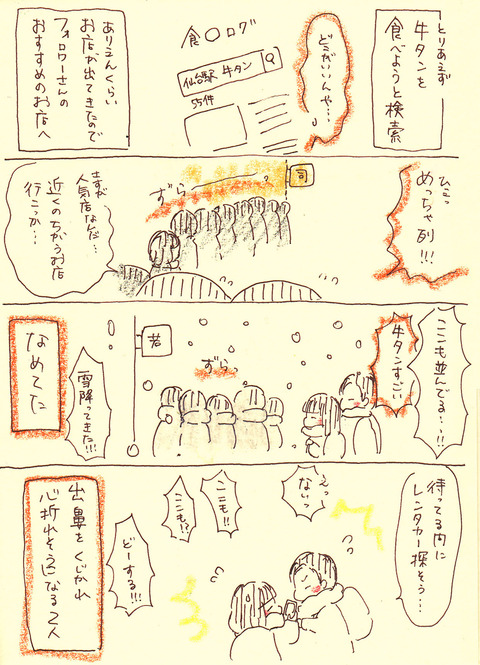 とりあえず
牛タンを
食べようと検索
どこがいいんや…
食〇ログ
仙台駅 牛タン
55件
ありえんくらい
お店が出てきたので
フォロワーさんの
おすすめのお店へ
ひえっ
めっちゃ列!!!
司
ずらーっ
さすが
人気店なんだ…
近くのちがうお店
行こっか…
ここも並んでる…!!
牛タンすごい
ずらっ
若
雪降ってきた!!!
なめてた
待ってる内に
レンタカー探そう…
えっ
ないっ
ここも!!
ここも!?
どーする!!!
出鼻をくじかれ
心折れそうになる2人